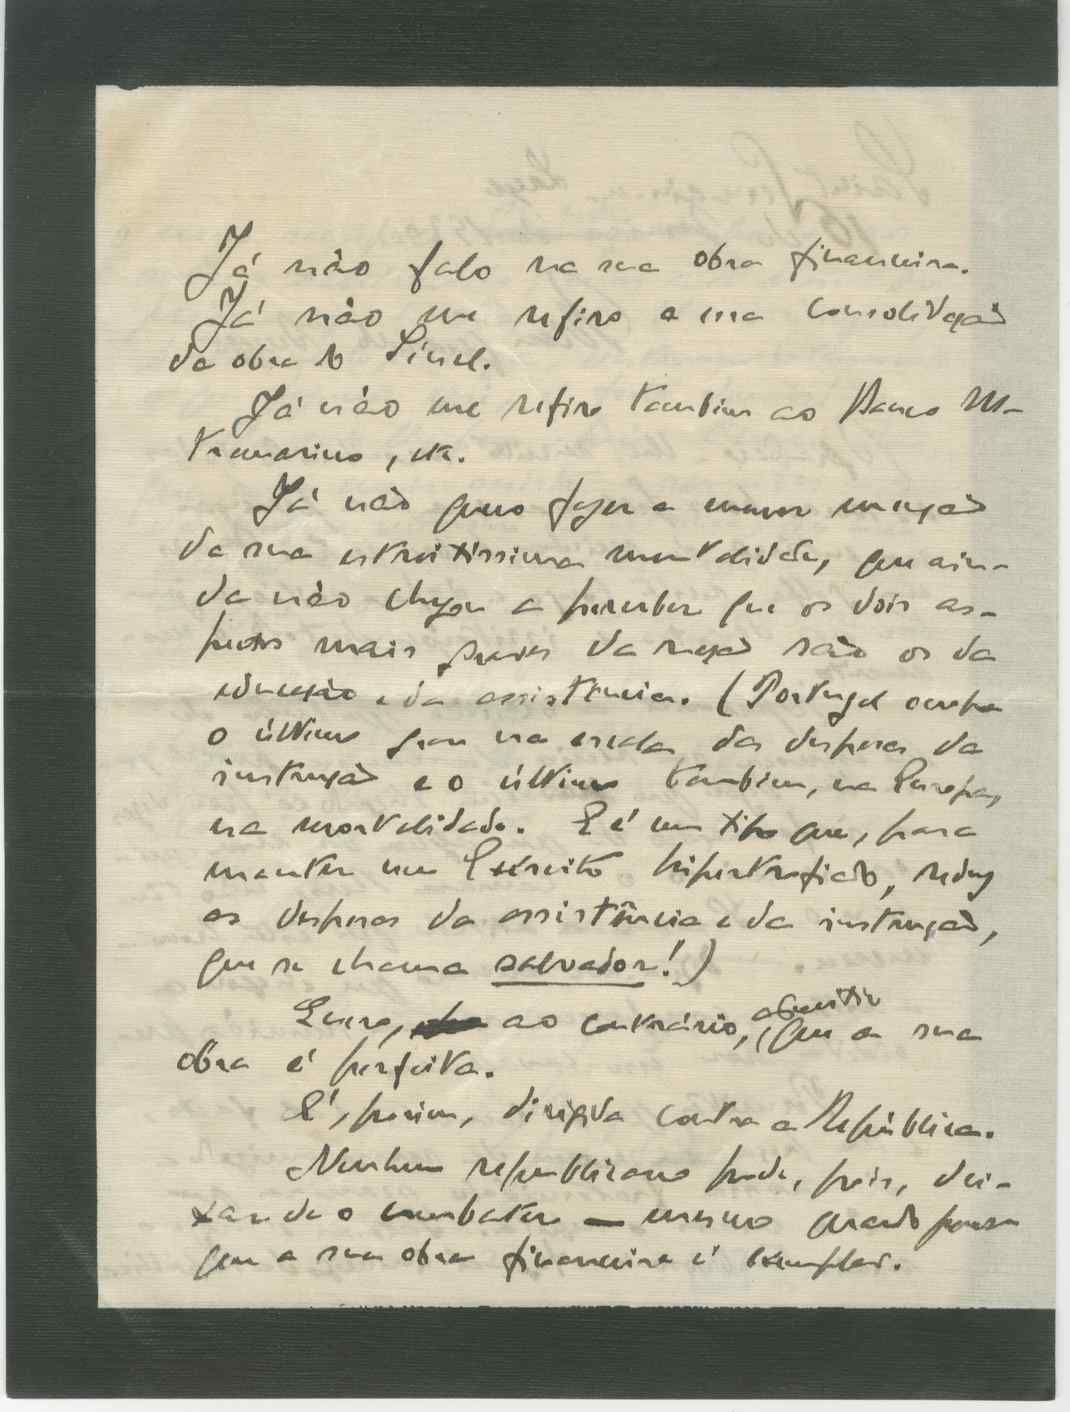 Já não falo na sua obra financeira.
Já não me refiro a essa consolidação
da obra do Sinel.
Já não me refiro também ao Banco Ul-
tramarino, etc.
Já não quero fazer a menor menção
da sua estreitíssima mentalidade, que ain-
da não chegou a perceber que os dois as-
pectos mais graves da nação são os da
educação e da assistência. (Portugal ocupa
o último grau na escala das despesas da
instrução e o último também, na Europa,
na mortalidade. E é um tipo que, para
manter um Exército hipertrofiado, reduz
as despesas da assistência e da instrução,
que se chama salvador!)
Quero, ao contrário, admitir que a sua
obra é perfeita.
É, porém, dirigida contra a República.
Nenhum republicano pode, pois, dei-
xar de o combater — mesmo quando pensa
que a sua obra financeira é exemplar.